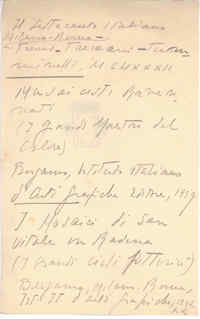 Il Settecento Italiano
Milano-Roma-
MCMXXXII
Musaicisti Raven-
nati
(I grandi Maestri del
Colore)
Bergamo, Istituto Italiano
d'Arti grafiche Editore, 1939
I Mosaici di San
Vitale in Ravenna
(I grandi cicli pittorici)
Bergamo, Milano, Roma,
Ist. It. d'arti grafiche,